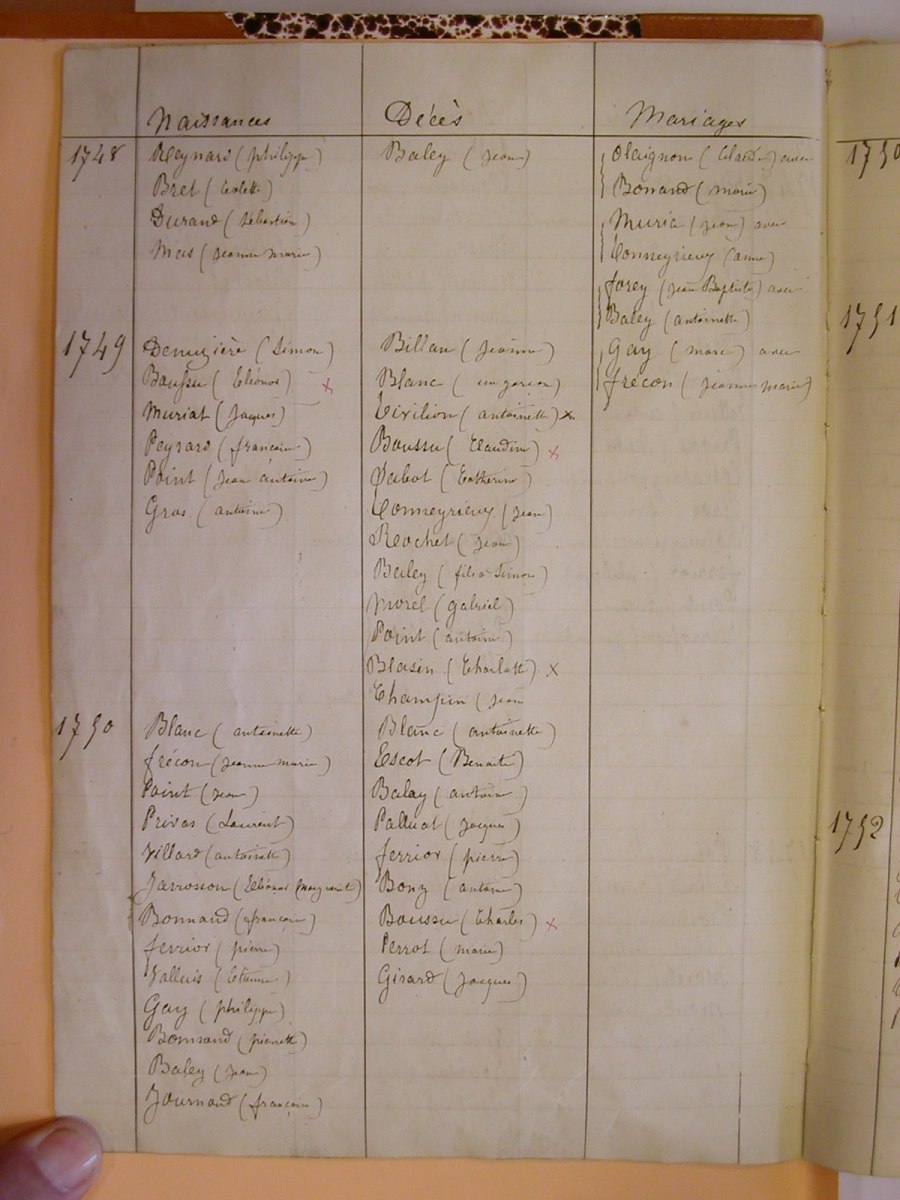 Naissances Décès Mariages
1748 Reynard (philippe) Baley (Jean) Olaignon (Claude) avec
Bret (Colette) Bonnand (marie)
Durand (Sébastien) Muria (Jean) avec
Mas (Jeanne marie) Conneyrieuy (anne)
forey (Jean Baptiste) avec
Baley (antoinette)
1749 Denuzière (Simon) Billan (Jeanne) Gay (marc) avec
Boussu (Eléonor) x Blanc (un garçon) frécon (Jeanne marie)
Muriat (Jacques) (antoinette) x
Peyrard (françoise) Boussu (Claudine) x
Point (Jean antoine) Sabot (Catherine)
Gros (antoine) Conneyrieuy (Jean)
Rochet (Jean)
Baley (fils à Simon)
Morel (gabriel)
Point (antoine)
Blasin (Charlotte) x
Champin (Jean
1750 Blanc (antoinette) Blanc (antoinette)
frécon (Jeanne marie) Escot (Benoite)
Point (Jean) Balay (antoine)
Privas (Laurent) Palluat (Jacques)
Villard (antoinette) ferrior (pierre)
Jarrosson (Eléonor Marguerite) Bony (antoine)
Bonnand (françoise) Boussu (Charles) x
ferrior (pierre) Perrot (marie)
Valluis (Etienne) Girard (Jacques)
Gay (philippe)
Bonnand (pierrette)
Baley (Jean)
Journoud (françoise)
1750
1751
1752